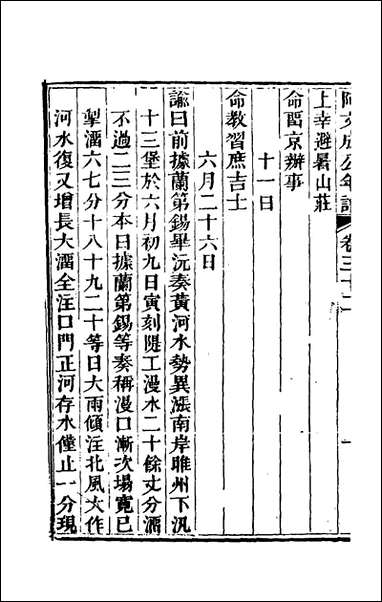 阿文成公年譜 卷三十二 一
上幸避暑山莊
命留京辦事
十一日
命教習庶吉士
六月二十六日
諭曰前據蘭第錫畢沅奏黃河水勢異漲南岸睢州下汛
十三堡於六月初九日寅刻隄工漫水二十餘丈分溜
不過二三分本日據蘭第錫等奏稱漫口漸次塌寬已
掣溜六七分十八十九二十等日大雨傾注北風大作
河水復又增長大溜全注口門正河存水僅止一分現